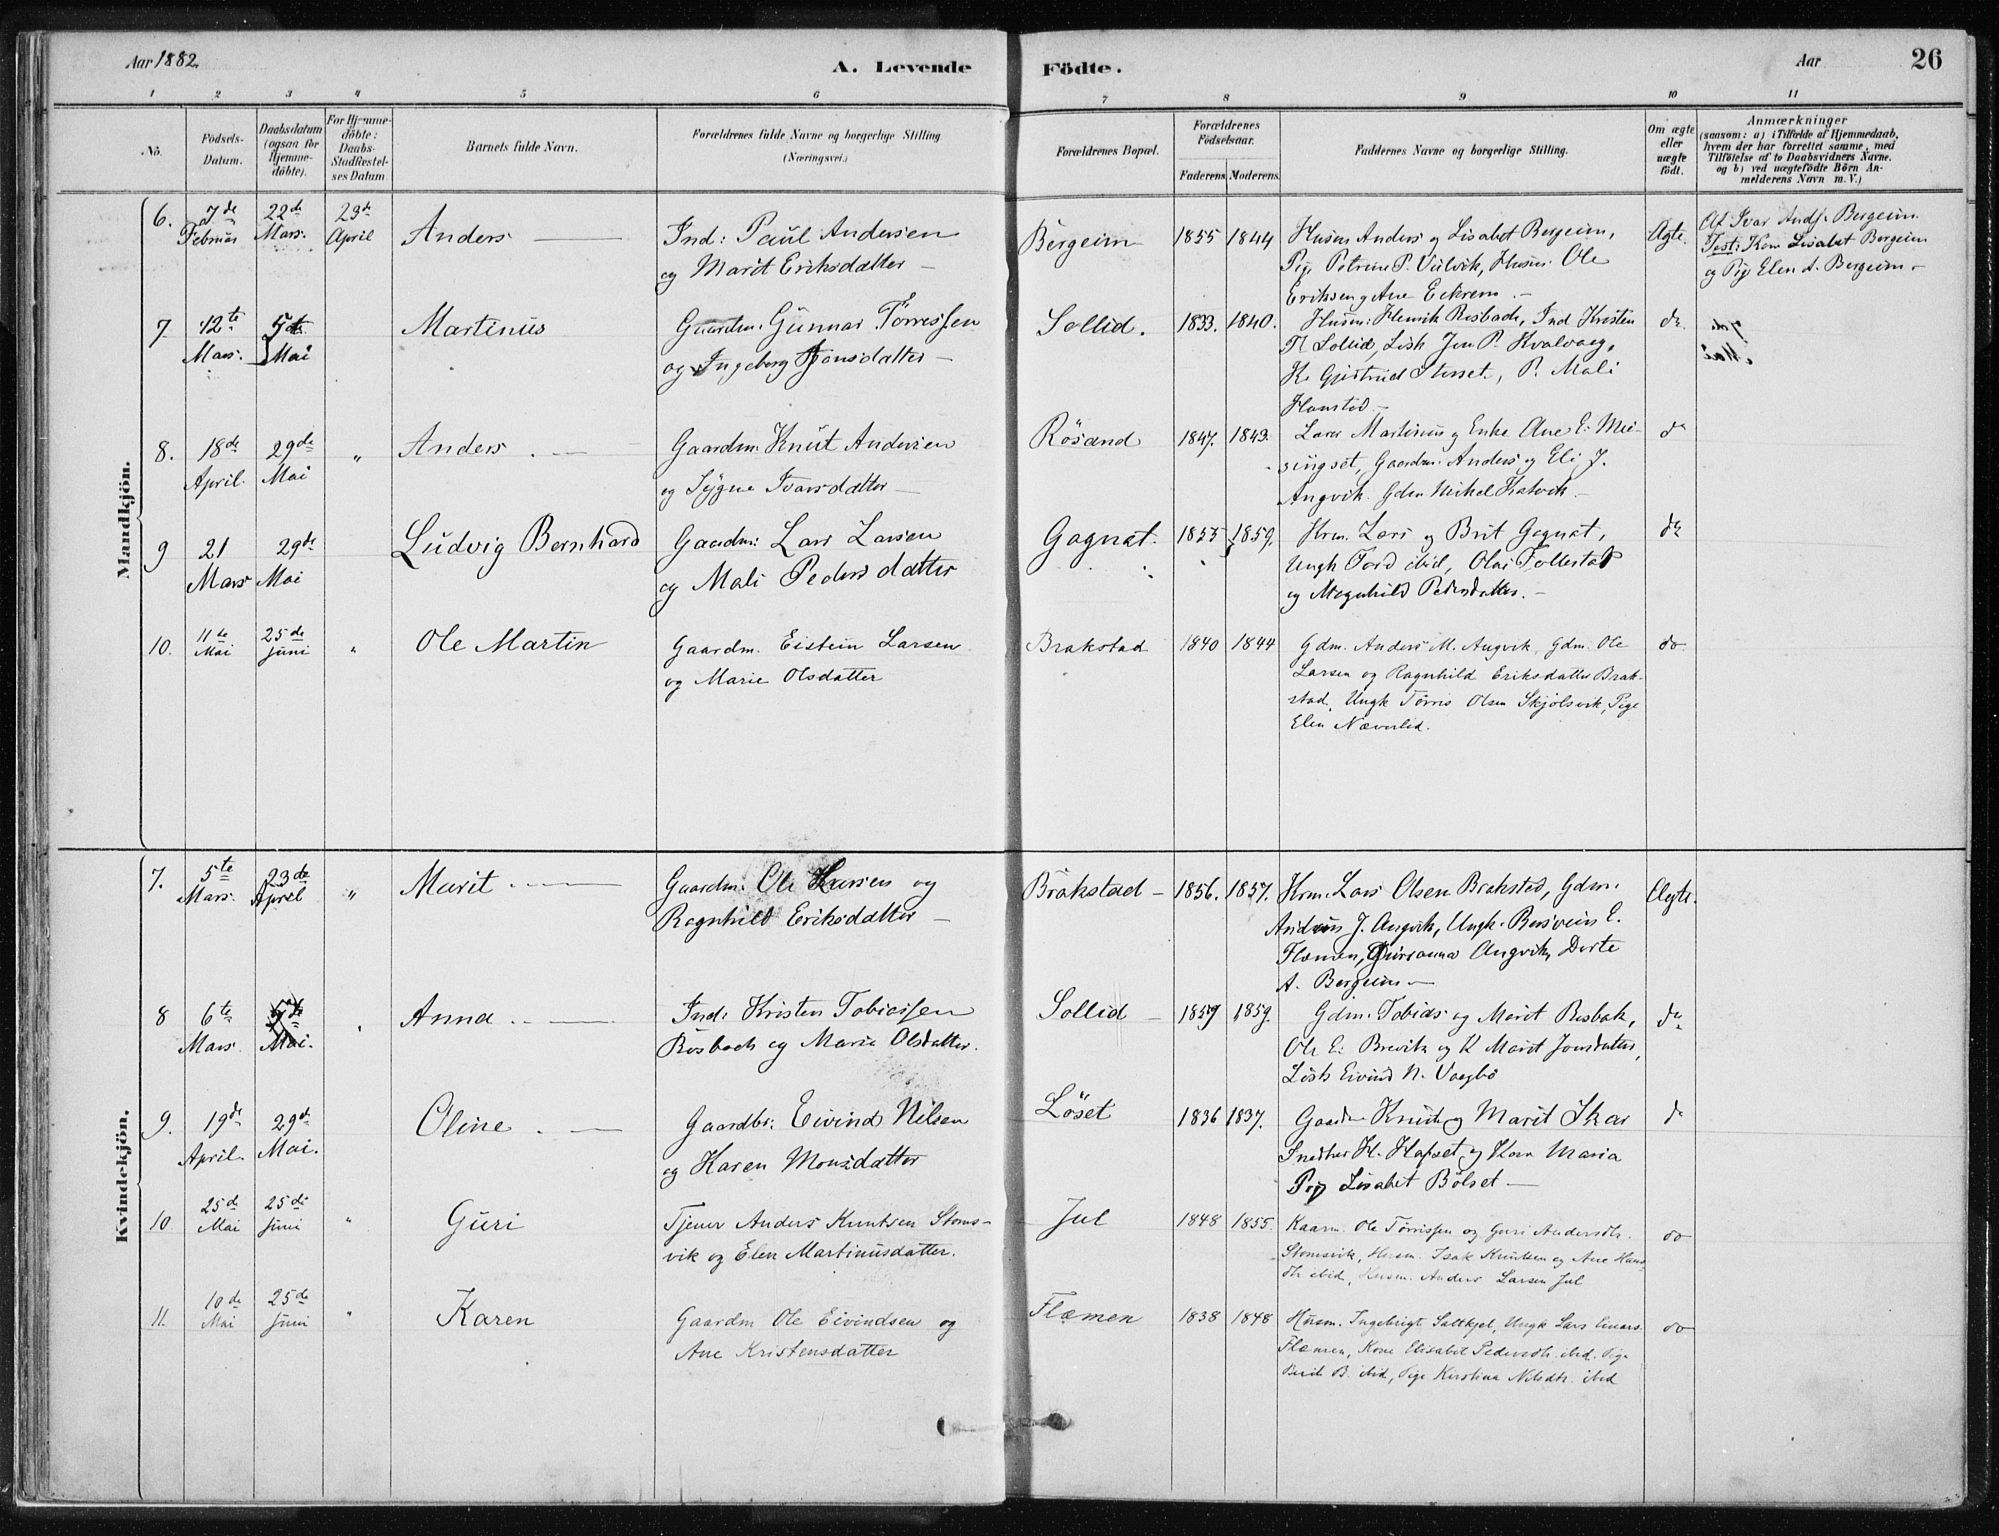 Aar 1882.
A. Levende Födte.
Aar
26
1 2 3 4 5 6 7 8 9 10 11
No.
Födsels-
Datum.
Daabsdatum
(ogsaa for
Hjemme-
döbte).
For Hjemme-
döbte:
Daabs-
Stadfæstel-
ses Datum
Barnets fulde Navn.
Forældrenes fulde Navne og borgerlige Stilling
(Næringsvei.)
Forældrenes Bopæl.
Forældrenes
Födselsaar.
Faderens Moderens.
Faddernes Navne og borgerlige Stilling.
Om ægte
eller
uægte
födt.
Anmærkninger
(saasom: a) i Tilfælde af Hjemmedaab,
hvem der har forrettet samme, med
Tilföielse af to Daabsvidners Navne.
og b) ved uægtefödte Börn An-
melderens Navn m. V.)
Mandkjön.
6. 7de Februar
22de Mars.
23de April
Anders
Ind: Paul Andersen
og Marit Eriksdatter
Bergeim
1855 1844
Husm Anders og Lisabet Bergeim,
Pige Petrine P. Husm. Ole
Eriksen og Ane Eckrem.
Ægte.
Af Ivar Andr. Bergeim
Test: Kom Lisabet Bergeim
og Pig Elen A. Bergeim
7. 12te Mars.
5te Mai
Martinus
Gaardm. Gunnar Törressen
og Ingeborg Jonsdatter
Sollid.
1833. 1840.
Husm: Henrik Rosbach, Ind Kristen
T. Sollid, Losk Jon P. Kvalvaag,
K. Gjertrud P. Mali
Hanstad
do
7de
Mai
8. 18de April.
29de Mai
"
Anders
Gaardm. Knut Andersen
og Sygne Ivarsdatter
Rösand
1847. 1843.
Lærer Martinus og Enke Ane E. Mei-
singset, Gaardm. Anders og Eli J.
Angvik. Gdm. Mikel
do
9 21 Mars
29de Mai
Ludvig Bernhard
Gaardm: Lars Larsen
og Mali Pedersdatter
Gagnat.
1855 1859.
Krm. Lars og Brit Gagnat,
Ungk Tord ibid, Olai Tollestad
og Magnhild Pedersdatter.
do
10. 11te Mai
25de Juni
"
Ole Martin
Gaardm. Eistein Larsen
og Marie Olsdatter
Brakstad
1840 1844
Gdm. Anders M. Angvik, Gdm. Ole
Larsen og Ragnhild Eriksdatter Brak-
stad, Ungk Törris Olsen Skjölsvik, Pige
Elen Næverlid.
do
Kvindekjön.
7. 5te Mars.
23de April
"
Marit
Gaardm. Ole Larsen og
Ragnhild Eriksdatter
Brakstad
1856. 1857.
Krm. Lars Olsen Brakstad, Gdm.
Andreas J. Angvik, Ungk. E.
Flemen, Angvik, Dorte
A. Bergeim
Ægte.
8 6te Mars.
Mai.
Anna
Ind: Kristen Tobiassen
Rosbach og Marie Olsdatter.
Sollid
1859 1859.
Gdm. Tobias og Marit Rosbak,
Ole E. Brevik og K Marit Jonsdatter,
Losk Eivind N. Vaagbö
do
9. 19de April.
29de Mai.
Oline
Gaardbr: Eivind Nilsen
og Karen Monsdatter
Löset
1836 1837.
Gaardm Knut og Marit Skar
H. Hafset og Kona Maria
Pig Lisabet Bölset
do
10 25de Mai
25de Juni
"
Guri
Tjener Anders Knutsen Stoms-
vik og Elen Martinusdatter.
Jul
1848 1855.
Kaarm. Ole Törrissen og Guri Andersdtr.
Stomsvik, Husm. Isak Knutsen og Ane Hans-
dtr ibid, Husm. Anders Larsen Jul
do
11. 10de Mai
25de Juni
"
Karen
Gaardm Ole Eivindsen og
Ane Kristensdatter
Flæmen
1838 1848
Husm. Ingebrigt Saltkjel, Ungk Lars Einars.
Flæmen, Kone Elisabet Pedersdtr. ibid. Pige
Berit B. ibid, Pige Kirstina Nilsdtr. ibid
do